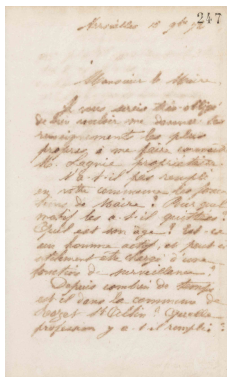 247
Versailles 18 9bre 72
Monsieur le Maire,
Je vous serais très obligé
de bien vouloir me donner les
renseignements les plus
propres à me faire connaître
M. propriétaire
N'a-t-il pas rempli
en votre commune les fonc
tions de Maire ? Pour quel
motif les a-t-il quittées ?
Quel est son âge ? Est-ce
un homme actif, et peut-il
être chargé d'une
fonction de surveillance ?
Depuis combien de temps
est-il dans la commune de
St Aubin ? Quelle
profession y a-t-il rempli ?